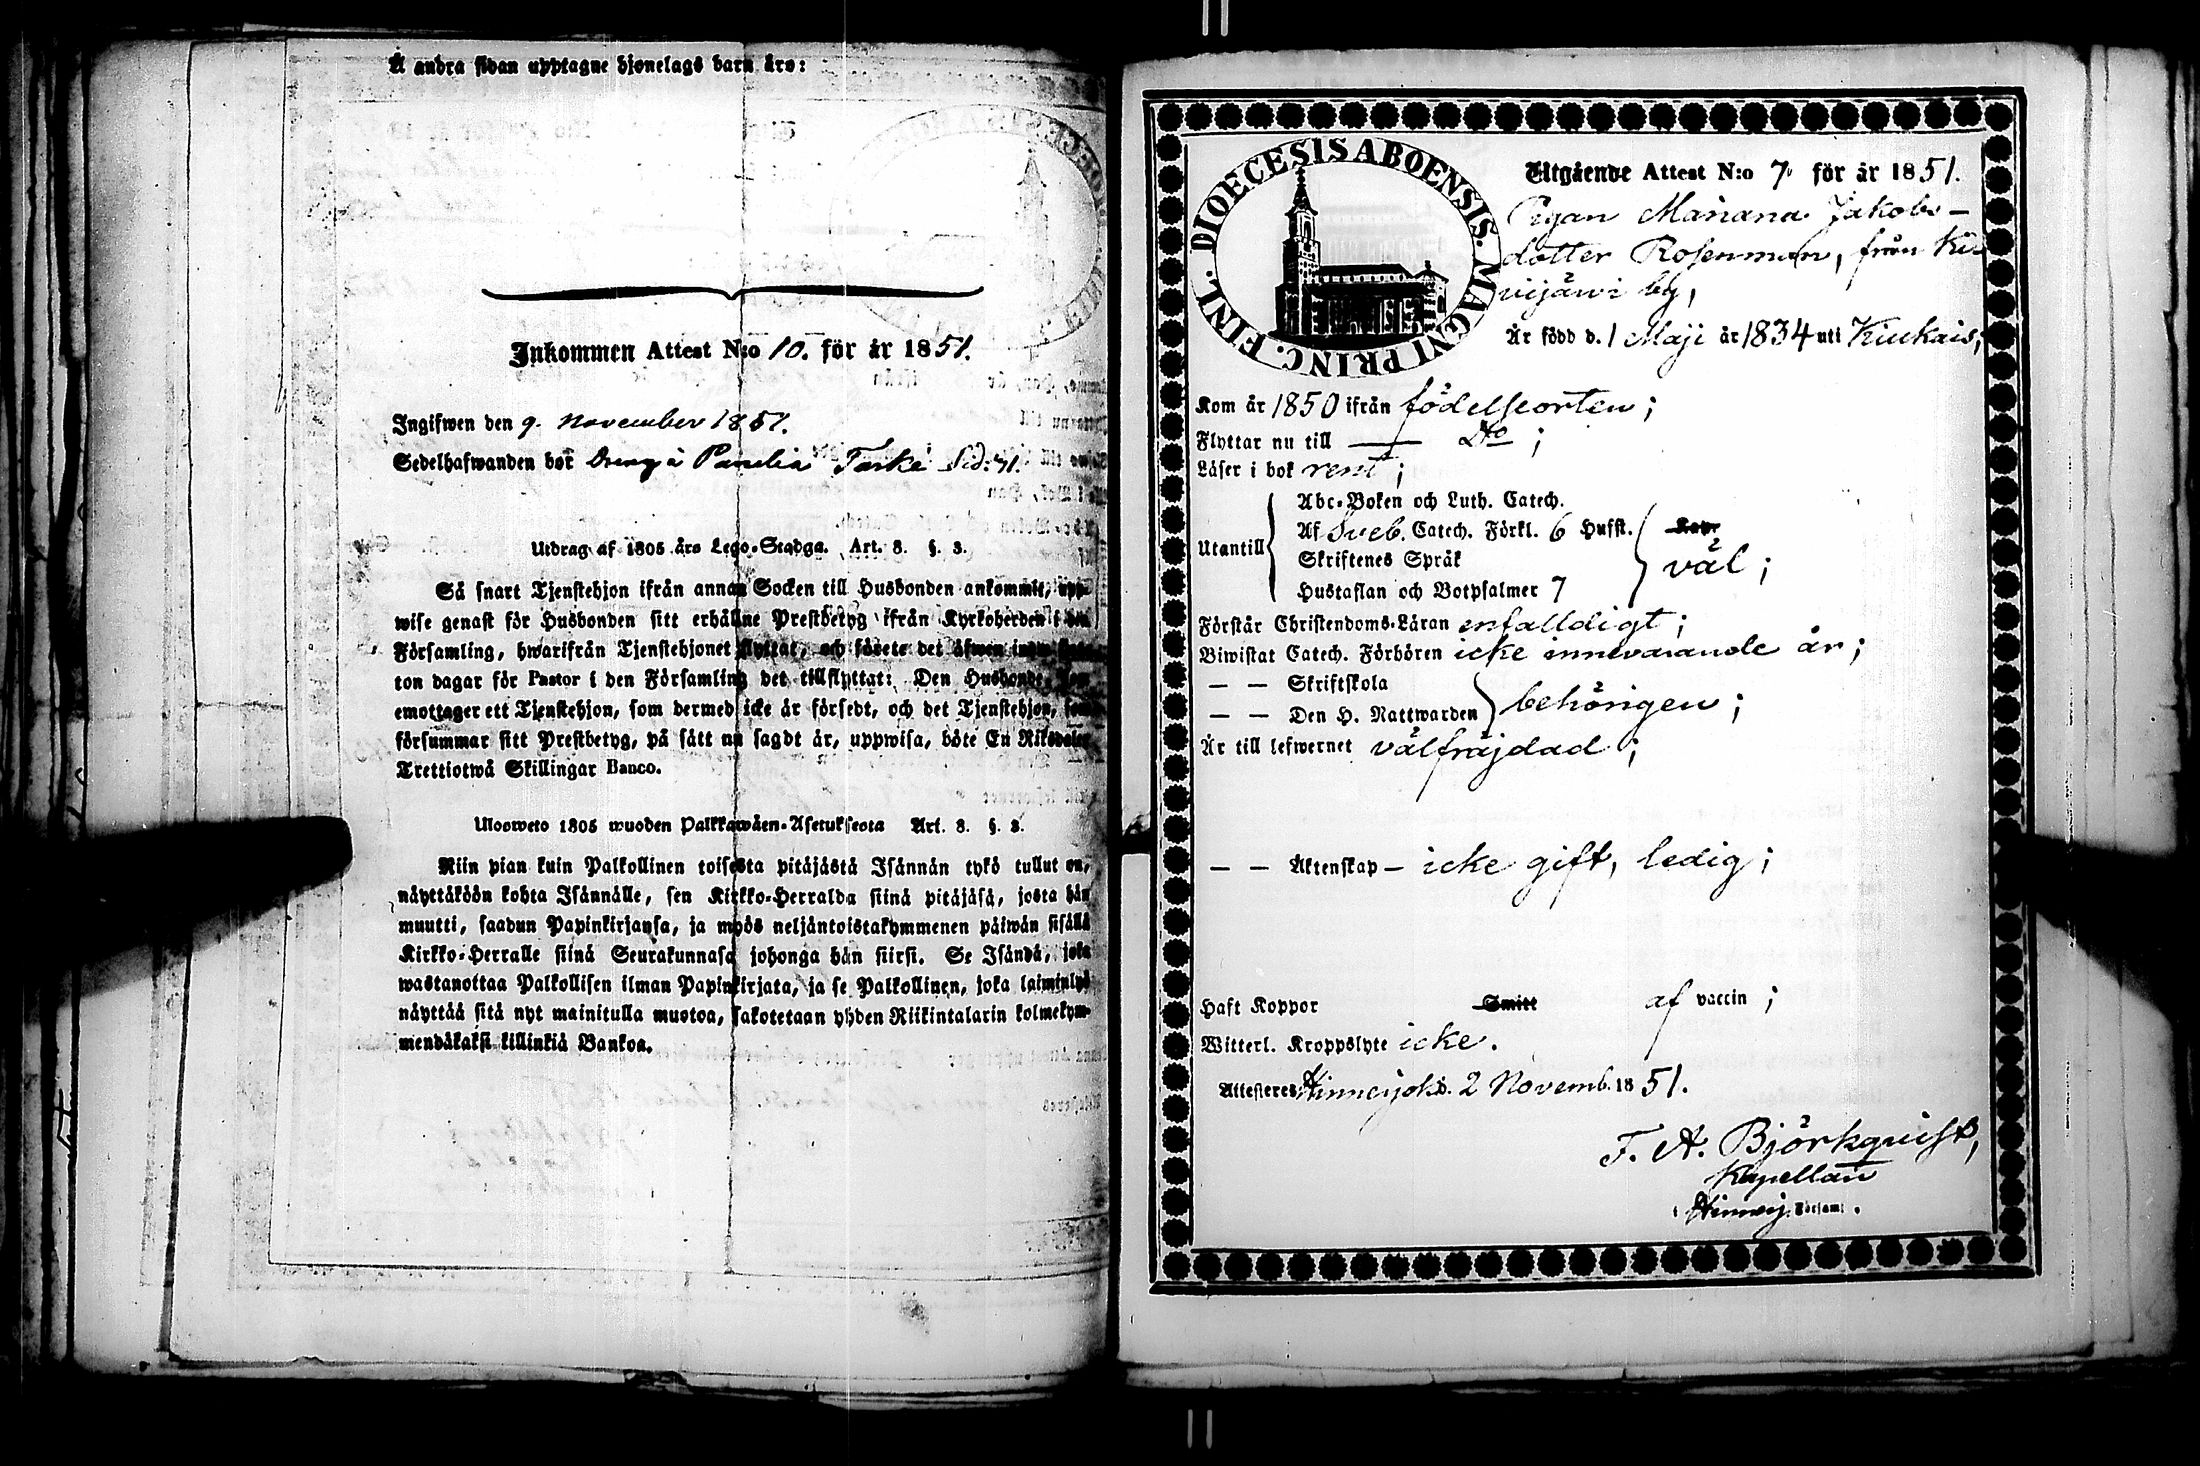 Å andra sidan upptagne hjonelags barn äro:
Inkommen Attest N:o 10. för år 1851.
Ingifwen den 9. November 1851.
Sedelhafwanden bor Dreng å Panelia Taske Sid: 41.
Utdrag af 1805 års Lego-Stadga. Art. 8. §. 3.
Så snart Tjenstehjon ifrån annan Socken till Husbonden ankommit, upp-
wise genast för Husbonden sitt erhållne Prestbetyg ifrån Kyrkoherden i den
Församling, hwarifrån Tjenstehjonet flyttat, och förete det äfwen inom fjor-
ton dagar för Pastor i den Församling det tillflyttat: Den Husbonde, som
emottager ett Tjenstehjon, som dermed icke är försedt, och det Tjenstehjon, som
försummar sitt Prestbetyg, på sätt nu sagdt är, uppwisa, böte En Riksdaler
Trettiotwå Skillingar Banco.
Ulosweto 1805 wuoden Palkkawäen-Asetuksesta Art. 8. §. 3.
Niin pian kuin Palkollinen toisesta pitäjästä Isännän tykö tullut on,
näyttäköön kohta Isännälle, sen Kirkko-Herralda siinä pitäjäsä, josta hän
muutti, saadun Papinkirjansa, ja myös neljäntoistakymmenen päiwän sisällä
Kirkko-Herralle siinä Seurakunnasa johonga hän siirsi. Se Isändä, joka
wastanottaa Palkollisen ilman Papinkirjata, ja se Palkollinen, joka laiminlyö
näyttää sitä nyt mainitulla muotoa, sakotetaan yhden Riikintalarin kolmekym-
mendäkaksi killinkiä Bankoa.
DIOECESIS ABOENSIS. MAGNI PRINC. FINL.
Utgående Attest N:o 7 för år 1851.
Pigan Mariana Jakobs-
dotter Rosenman, från Kii-
wijärwi by,
Är född d. 1 Maji år 1834 uti Kiukais,
Kom år 1850 ifrån födelseorten;
Flyttar nu till — Do;
Läser i bok rent;
Utantill
Abc-Boken och Luth. Catech.
Af Sveb. Catech. Förkl. 6 Hufst.
Skriftenes Språk
Hustaflan och Botpsalmer 7
väl;
Förstår Christendoms-Läran enfalldigt;
Biwistat Catech. Förhören icke innevarande år;
— — Skriftskola
— — Den H. Nattwarden
behörigen;
Är till lefwernet välfräjdad;
— — Äktenskap — icke gift, ledig;
Haft Koppor Smitt af vaccin;
Witterl. Kroppslyte icke.
Attesteres Hinnerjoki d. 2 Novemb. 1851.
F. A. Björkqvist,
Kapellan
i Hinnerj. Församl.